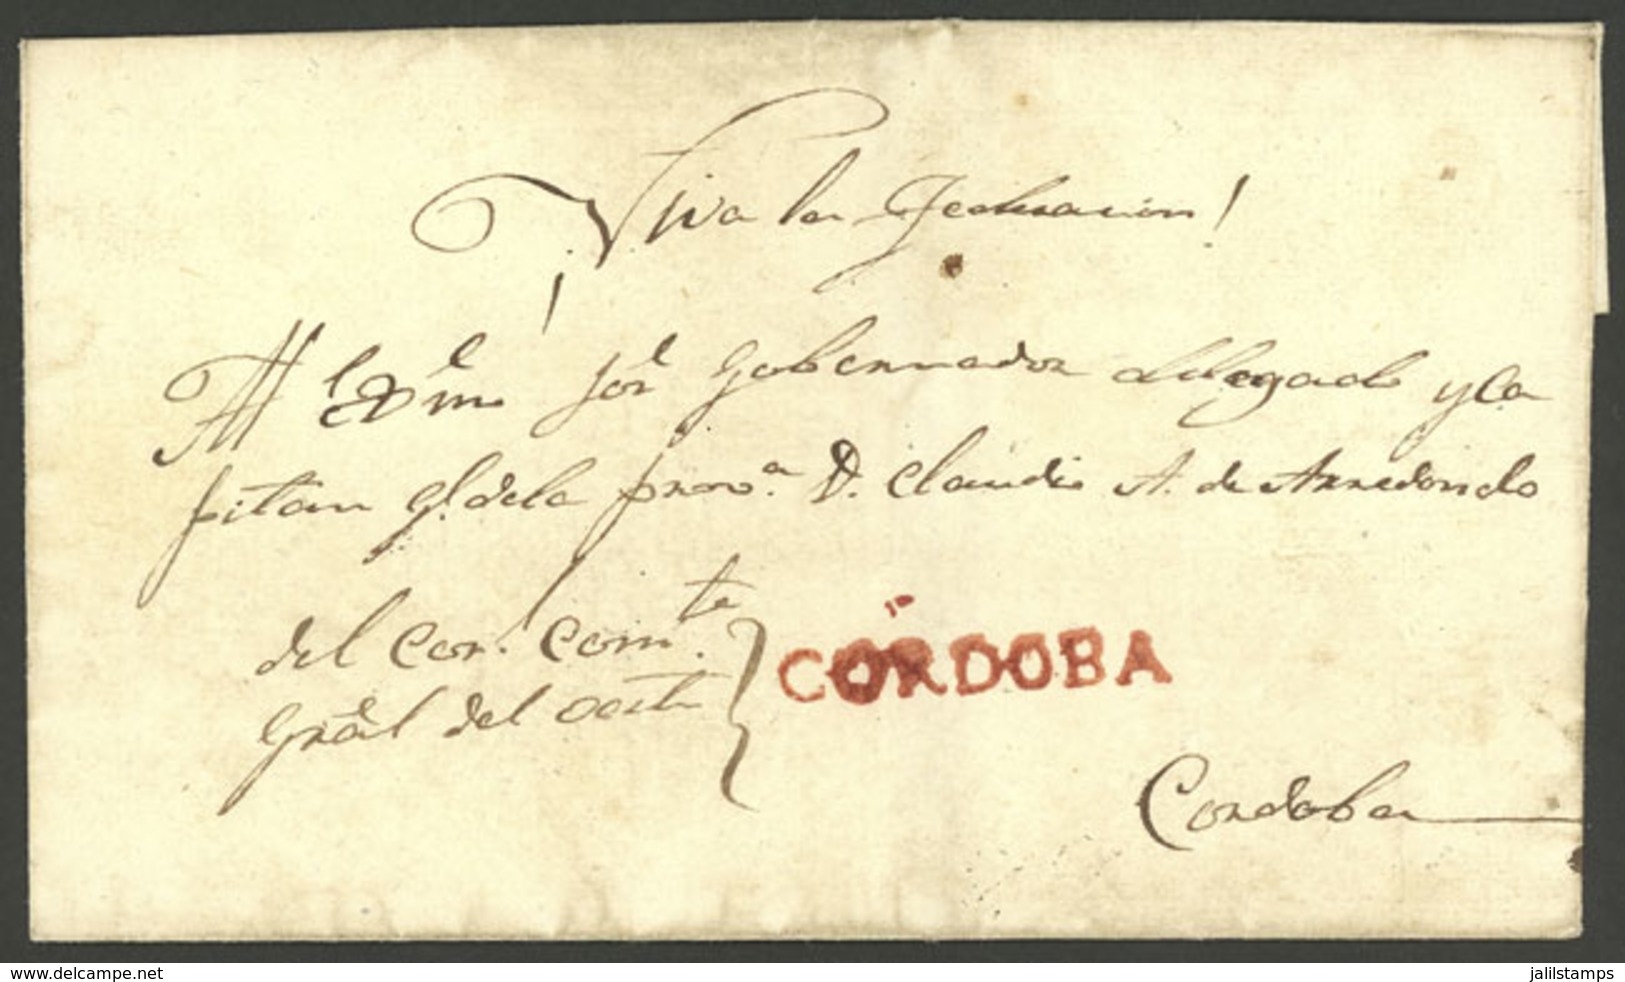 ¡Viva la Federacion!
Al Exmo Sor Gobernador delegado y Ca
pitan Gl. de la Prov.a D. Claudio A. de Arredondo
del Cor.l Com.te
Gral del Oeste
CORDOBA
Cordoba
www.delcampe.net
jalilstamps